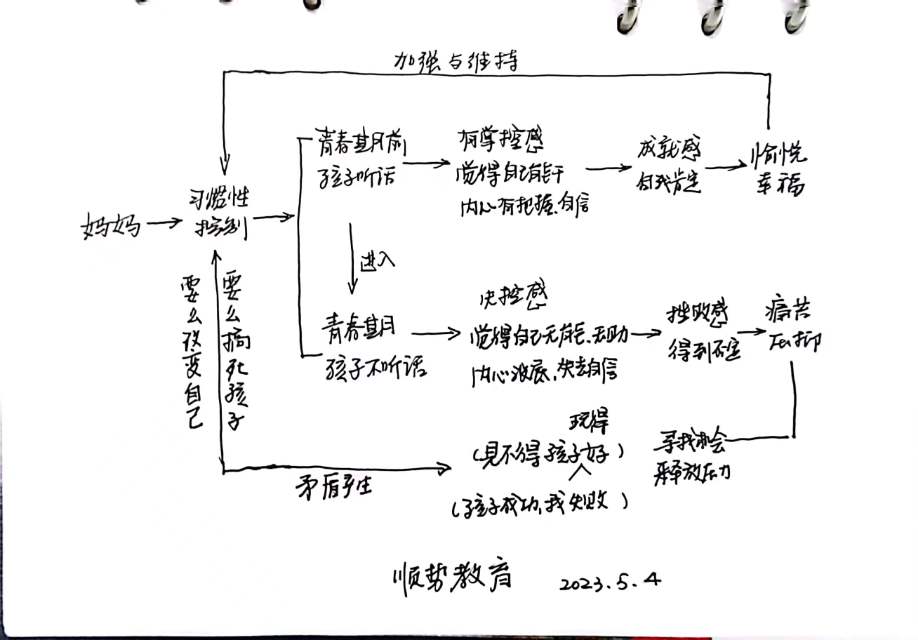 加强与维持
青春期前
孩子听话
有掌控感
觉得自己有能干
内心有把握、自信
成就感
自我肯定
愉悦
幸福
妈妈
习惯性
控制
进入
要么改变自己
要么搞死孩子
青春期
孩子不听话
失控感
觉得自己无能、无助
内心没底、失去自信
挫败感
得到否定
痛苦
压抑
玩得
(见不得孩子好)
寻找机会
释放压力
矛盾产生
(孩子成功,我失败)
顺势教育 2023.5.4